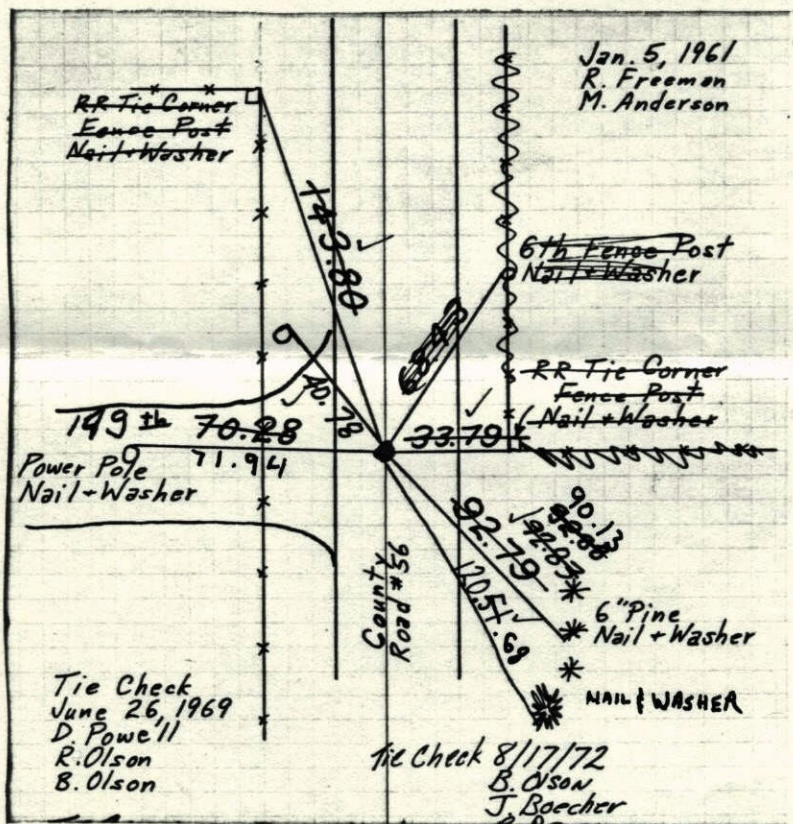 Jan. 5, 1961
R. Freeman
M. Anderson
RR Tie Corner
Fence Post
Nail + Washer
143.80
6th Fence Post
Nail + Washer
RR Tie Corner
Fence Post
Nail + Washer
40.78
33.79
149th
70.28
71.94
Power Pole
Nail + Washer
90.13
92.83
92.79
120.51
.68
County
Road #56
6" Pine
Nail + Washer
NAIL & WASHER
Tie Check
June 26, 1969
D. Powell
R. Olson
B. Olson
Tie Check 8/17/72
B. Olson
J. Boecher